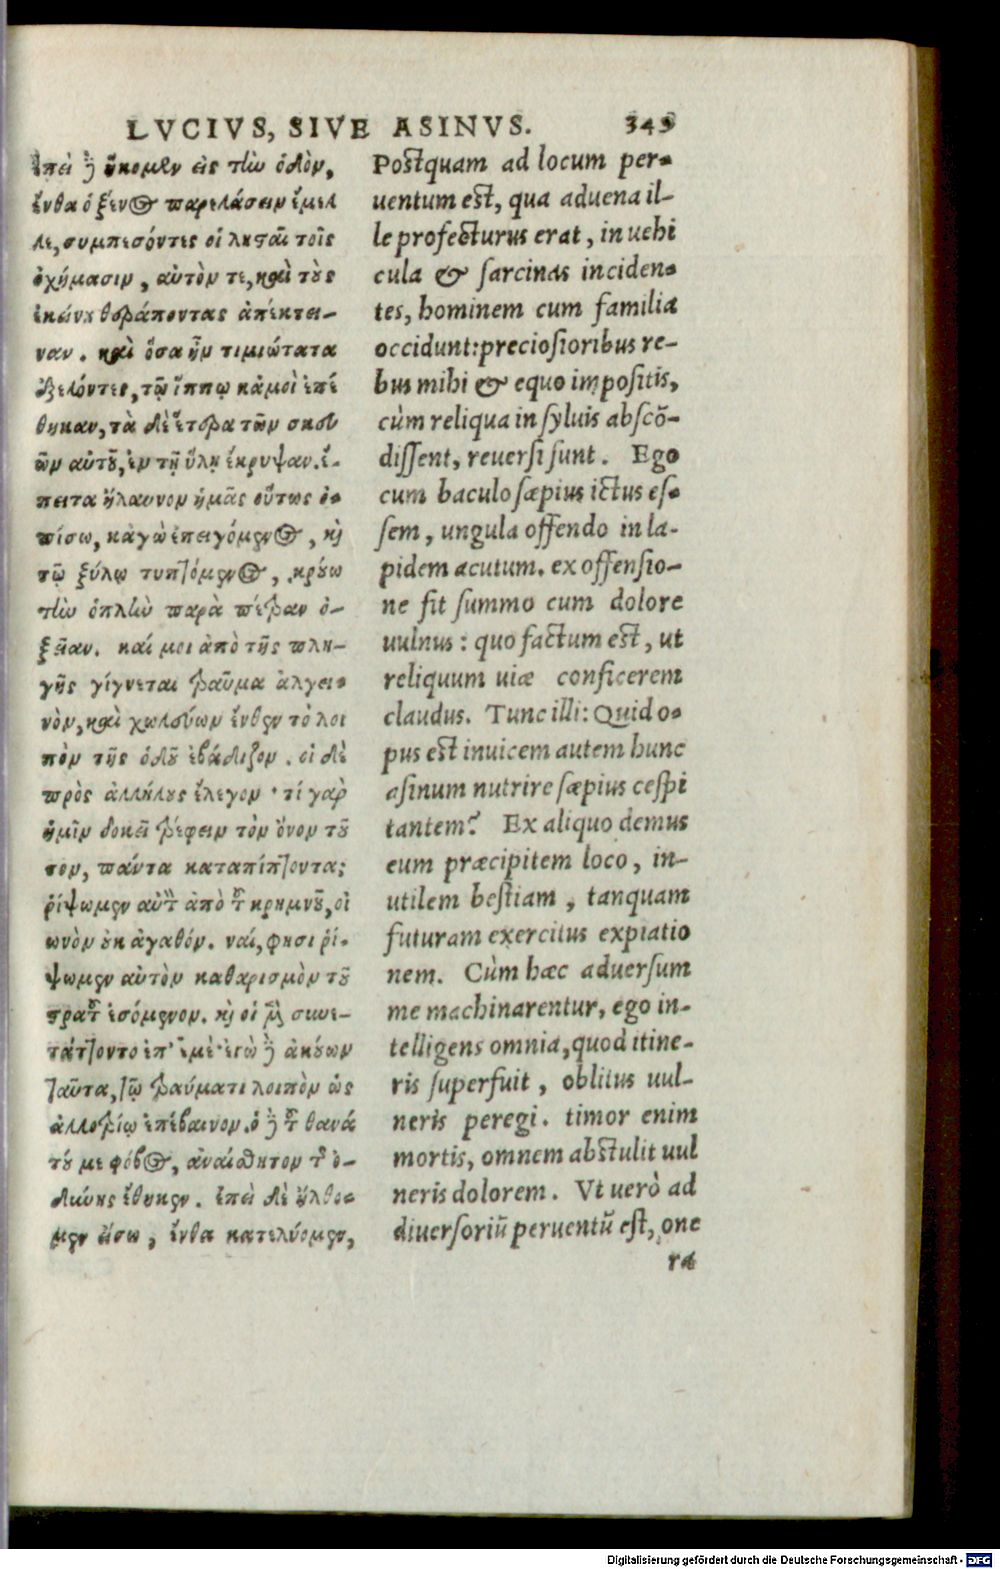 LVCIVS, SIVE ASINVS. 349
ἐπεὶ δὲ ἥκομεν εἰς τὴν ὁδὸν,
ἔνθα ὁ ξένος παρελάσειν ἔμελ
λε, συμπεσόντες οἱ λῃσταὶ τοῖς
ὀχήμασιν, αὐτὸν τε, καὶ τοὺς
ἐκείνου θεράποντας ἀπέκτει-
ναν. καὶ ὅσα ἦν τιμιώτατα
ἐξελόντες, τῷ ἵππῳ κἀμοὶ ἐπέ
θηκαν, τὰ δὲ ἕτερα τῶν σκευ
ῶν αὐτοῦ, ἐν τῇ ὕλῃ ἔκρυψαν. ἔ-
πειτα ἤλαυνον ἡμᾶς οὕτως ὀ-
πίσω, κἀγὼ ἐπειγόμενος, καὶ
τῷ ξύλῳ τυπτόμενος, κρούω
τὴν ὁπλὴν παρὰ πέτραν ὀ-
ξεῖαν. καί μοι ἀπὸ τῆς πλη-
γῆς γίγνεται τραῦμα ἀλγει-
νὸν, καὶ χωλεύων ἔνθεν τὸ λοι
πὸν τῆς ὁδοῦ ἐβάδιζον. οἱ δὲ
πρὸς ἀλλήλους ἔλεγον· τί γὰρ
ἡμῖν δοκεῖ τρέφειν τὸν ὄνον τοῦ
τον, πάντα καταπίπτοντα;
ῥίψωμεν αὐτὸν ἀπὸ τοῦ κρημνοῦ, οἰ
ωνὸν οὐκ ἀγαθόν. ναί, φησι ῥί-
ψωμεν αὐτὸν καθαρισμὸν τοῦ
στρατοῦ ἐσόμενον. καὶ οἱ μὲν συνε-
τάττοντο ἐπ' ἐμέ· ἐγὼ δὲ ἀκούων
ταῦτα, τῷ τραύματι λοιπὸν ὡς
ἀλλοτρίῳ ἐπέβαινον. ὁ δὲ τοῦ θανά
του με φόβος, ἀναίσθητον τῆς ὀ-
δύνης ἔθηκεν. ἐπεὶ δὲ ἤλθο-
μεν εἴσω, ἔνθα κατελύομεν,
Postquam ad locum per-
uentum est, qua aduena il-
le profecturus erat, in uehi
cula & sarcinas inciden-
tes, hominem cum familia
occidunt: preciosioribus re-
bus mihi & equo impositis,
cùm reliqua in syluis abscõ-
dissent, reuersi sunt. Ego
cum baculo sæpius ictus es-
sem, ungula offendo in la-
pidem acutum. ex offensio-
ne fit summo cum dolore
uulnus: quo factum est, ut
reliquum uiæ conficerem
claudus. Tunc illi: Quid o-
pus est inuicem autem hunc
asinum nutrire sæpius cespi
tantem? Ex aliquo demus
eum præcipitem loco, in-
utilem bestiam, tanquam
futuram exercitus expiatio
nem. Cùm hæc aduersum
me machinarentur, ego in-
telligens omnia, quod itine-
ris superfuit, oblitus uul-
neris peregi. timor enim
mortis, omnem abstulit uul
neris dolorem. Vt uerò ad
diuersoriũ peruentũ est, one
ra
Digitalisierung gefördert durch die Deutsche Forschungsgemeinschaft - DFG